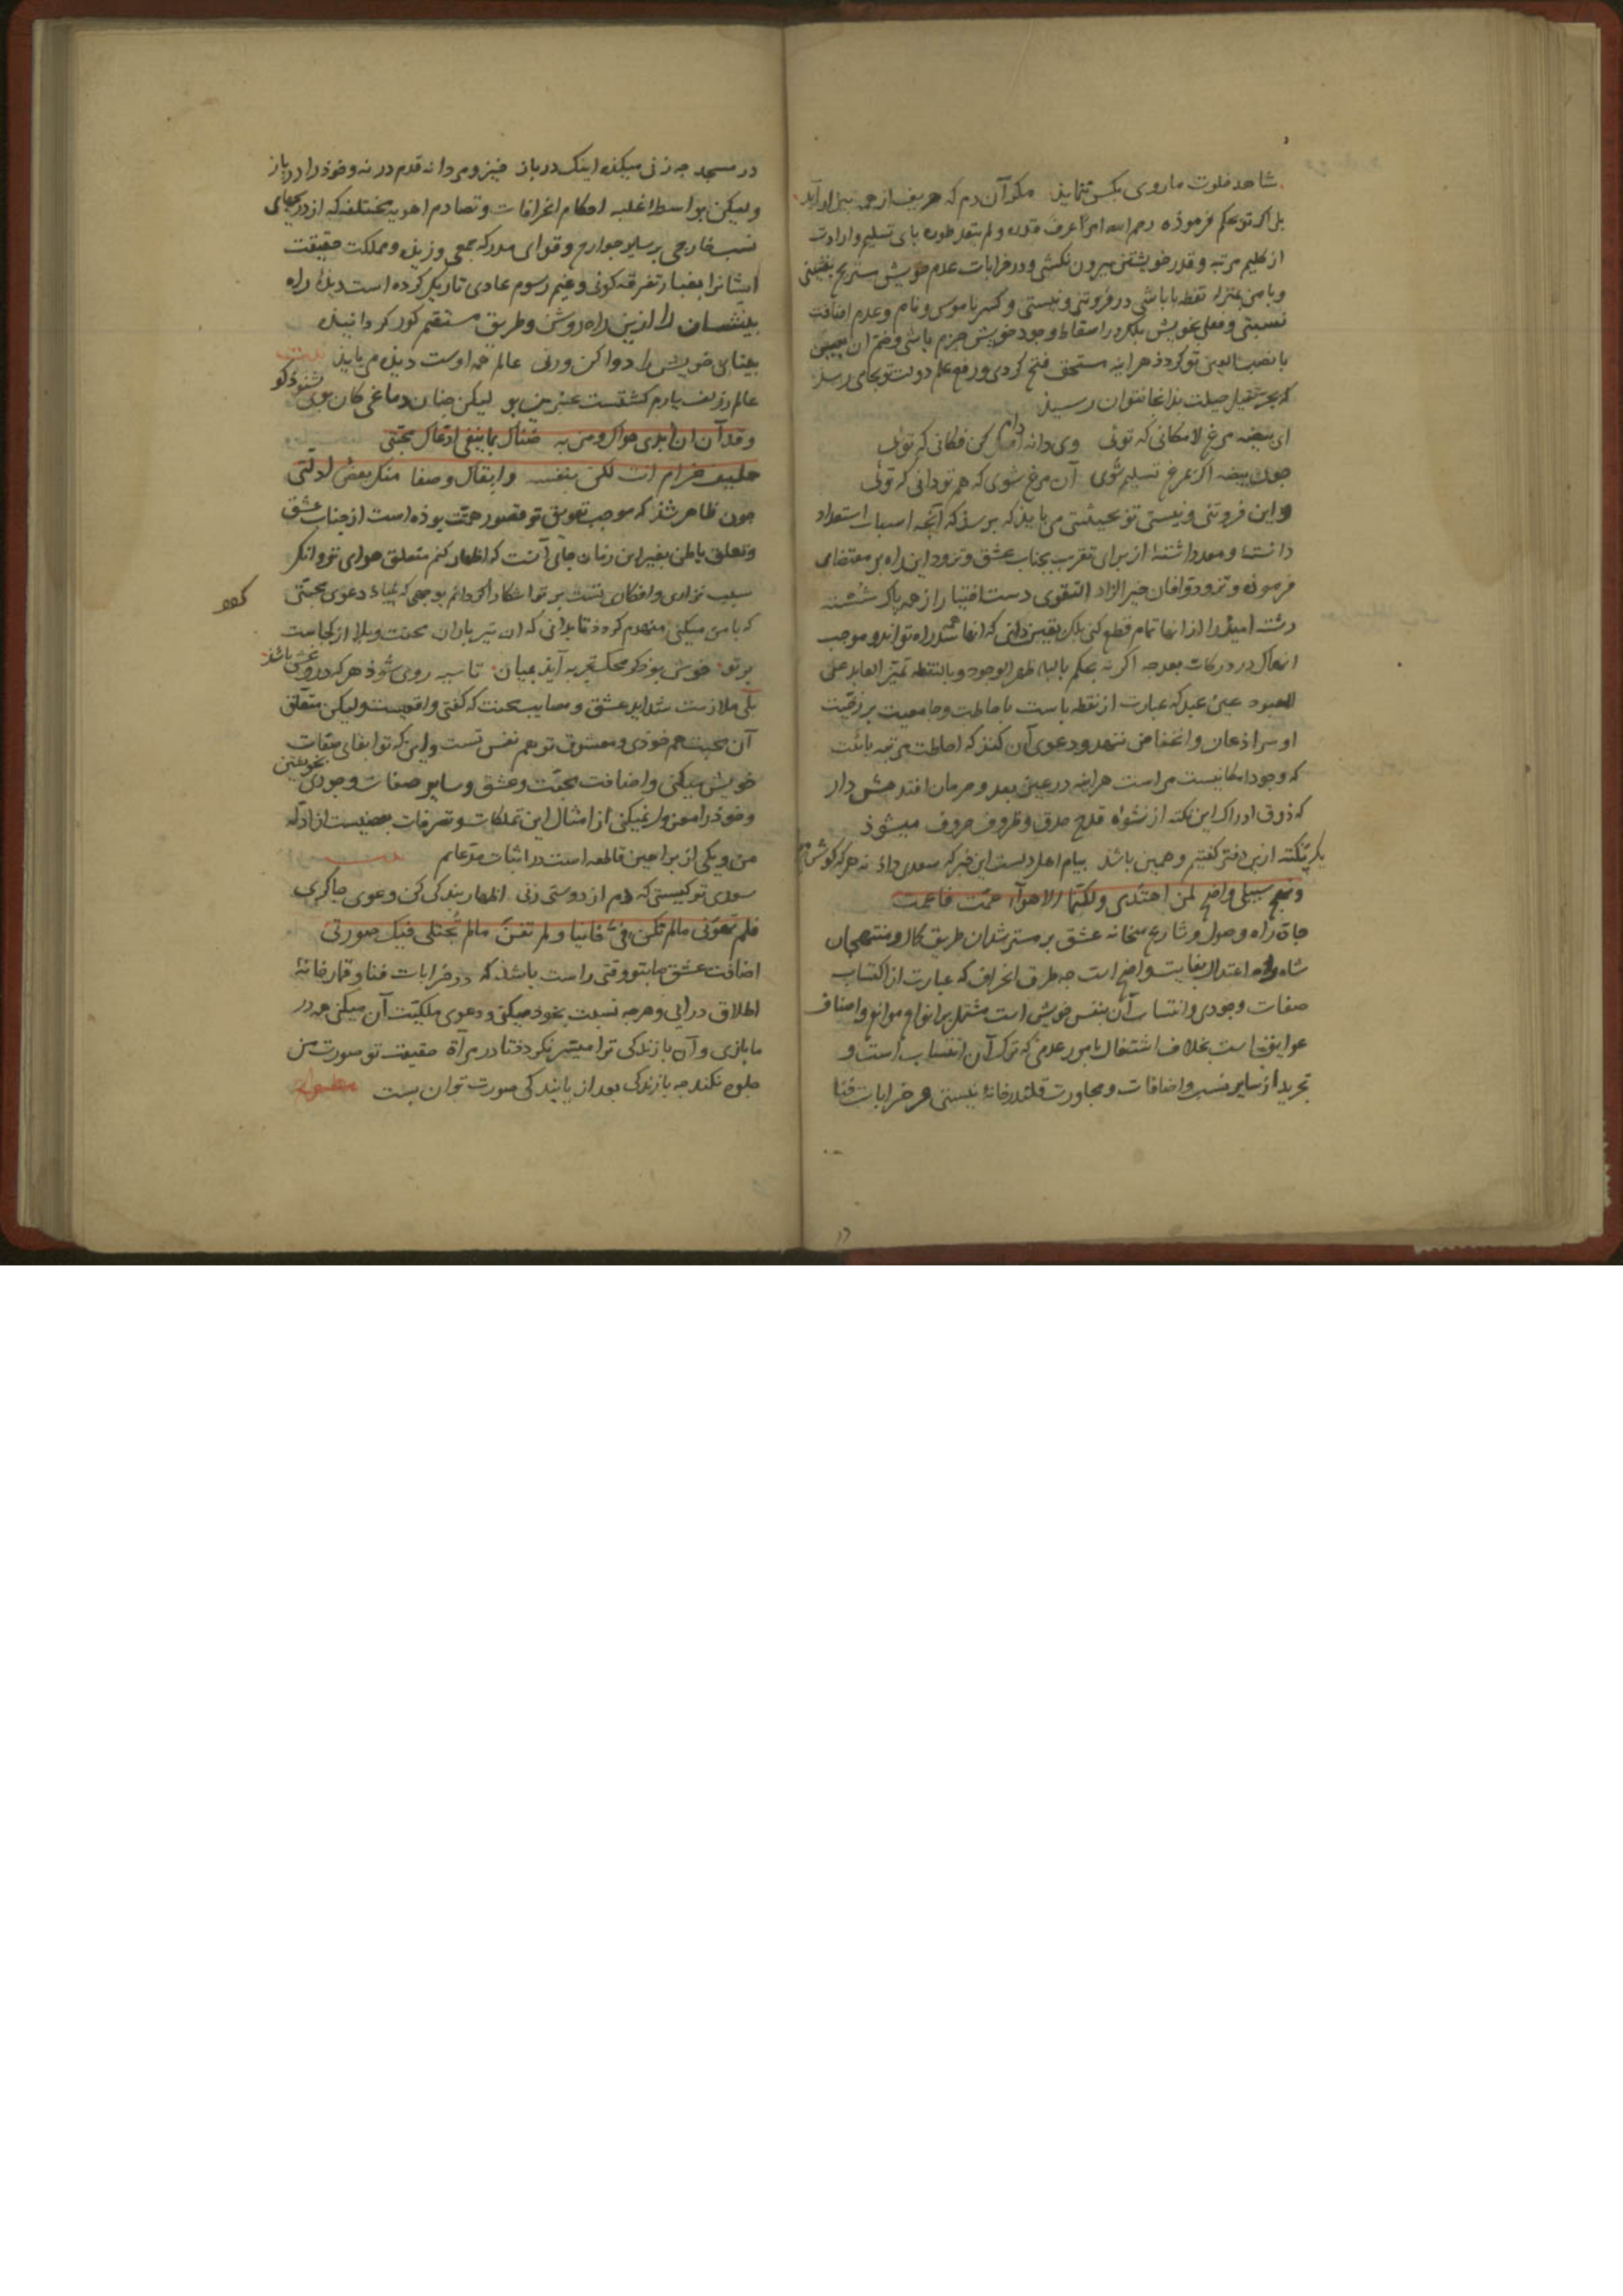 شاهد خلوت ما روی بکس ننماید مکر آن دم که حریف از همه بیزار آید
بلی اکر تو بحکم فرموده رحم الله امرأ عرف قدره ولم یتعد طوره پای تسلیم وارادت
از کلیم مرتبه و قدر خویشتن بیرون نکشی و در خرابات عدم خویش بنشینی
و با من بمنزله نقطه با باشی در فروتنی و نیستی و کسر ناموس و نام و عدم اضافت
نسبتی و فعلی بخویش بلکه در اسقاط وجود خویش جزم باشی و ضم ان
با نصب العین تو کردد هر اینه مستحق فتح کردی و رفع علم دولت تو بجایی رسد
که بحر ثقیل حیلت بذانجا نتوان رسید
ای بیضه مرغ لامکانی که تویی وی دانه دام کن فکانی که تویی
چون بیضه اکر بمرغ تسلیم شوی آن مرغ شوی که هم تو دانی که تویی
و این فروتنی و نیستی تو بحیثیتی می باید که برسد که آنچه اسباب استعداد
دانسته و معد داشته از برای تقرب بجناب عشق و تزود این راه بر مقتضای
فرموده وتزودوا فان خیر الزاد التقوی دست اختیار از همه پاک شسته
رشته امید را از انها تمام قطع کنی بلکه یقین دانی که انها همه سد راه تواند و موجب
انهماک در درکات بعد چه اکر نه بحکم بالباء ظهر الوجود وبالنقطه تمیز العابد عن
المعبود عین عبد که عبارت از نقطه باست باحاطت و جامعیت برزخیت
او سر اذعان و انخفاض ننهد و دعوی آن کند که احاطت مرتبه بائیت
که وجود امکانیست مراست هراینه در عین بعد و حرمان افتد هش دار
که ذوق ادراک این نکته از نشواه قدح حرف و ظروف حروف میشود
یک نکته ازین دفتر کفتیم و همین باشد پیام اهل دلست این خبر که سعدی داد نه هر که کوش
ونهج سبیلی واضح لمن اهتدی ولکنها الاهواء عمت فاعمت
جاده راه وصول و شارع میخانه عشق بر مسترشدان طریق کمال و منتهجان
شاه راه اعتدال بغایت واضح است چه طرف انحراف که عبارت از اکتساب
صفات وجودی وانتساب آن بنفس خویش است مشتمل بر انواع موانع و اصناف
عوایق است بخلاف اشتغال بامور عدمی که ترک آن انتساب است و
تجرید از سایر نسب و اضافات و مجاورت قلندرخانه نیستی هر خرابات فنا
در مسجد چه زنی میکده اینک در باز خیز و مردانه قدم در نه و خوذ را در باز
ولیکن بواسطه غلبه احکام انحرافات و تصادم اهویه مختلفه که از دریچهای
نسب خارجی بر سایر جوارح و قوای مدرکه جمعی وزیذه و مملکت حقیقت
ایشانرا بغبار تفرقه کونی و غیم رسوم عادی تاریک کرده است دیده راه
بینشان را ازین راه روشن و طریق مستقیم کور کردانیده
بینای خویش را دوا کن ورنی عالم همه اوست دیده می باید
عالم ز زلف یارم کشتست عنبرین بو لیکن چنان دماغی کان بوی بشنود کو
وقد آن ان ابدی هواک ومن به ضناک بما ینفی ادعاک محبتی
حلیف غرام انت لکن بنفسه وابقاک وصفا منک بعض ادلتی
چون ظاهر شذ که موجب تعویق تو قصور همت بوده است از جناب عشق
و تعلق باطن بغیر این زمان جای آنست که اظهار کنم متعلق هوای تو و انکه
سبب نزاری و افکار تنت بر تو اشکارا کردانم بوجهی که بنیاد دعوی محبتی
که با من میکنی منهدم کردد تا بدانی که ان تیر باران محنت و بلا از کجاست
بر تو خوش بود کر محک تجربه آید بمیان تا سیه روی شود هر که دروغش باشد
بلی ملازمت شداید عشق و مصایب محبت که کفتی واقعیست ولیکن متعلق
آن محبت هم خودی و معشوق تو هم نفس تست و این که تو ابقای صفات
خویش میکنی و اضافت محبت و عشق و سایر صفات وجودی بخویشتن
و خود را معزول نمیکنی از امثال این تملکات و تصرفات بعضیست از ادله
من و یکی از براهین قاطعه است در اثبات مدعایم
سعدی تو کیستی که دم از دوستی زنی اظهار بندکی کن و دعوی چاکری
فلم تهونی مالم تکن فی فانیا ولم تفن مالم تجتلی فیک صورتی
اضافت عشق ما بتو وقتی راست باشد که در خرابات فنا و قمارخانه
اطلاق درایی و هرچه نسبت بخود میکنی و دعوی ملکیت آن میکنی همه در
ما بازی و آن با زندکی ترا میسر نکردد تا در مرآة حقیقت تو صورت من
جلوه نکند چه با زندکی بعد از پایندکی صورت توان بست